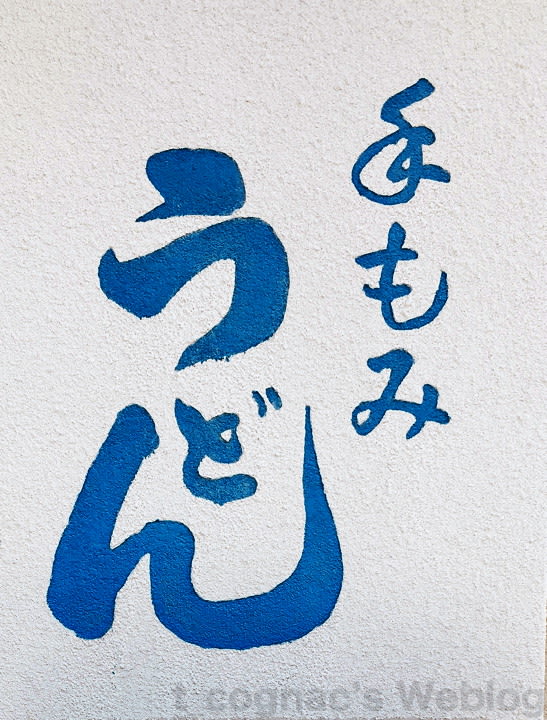 手もみ
うどん
t cognac's Weblog